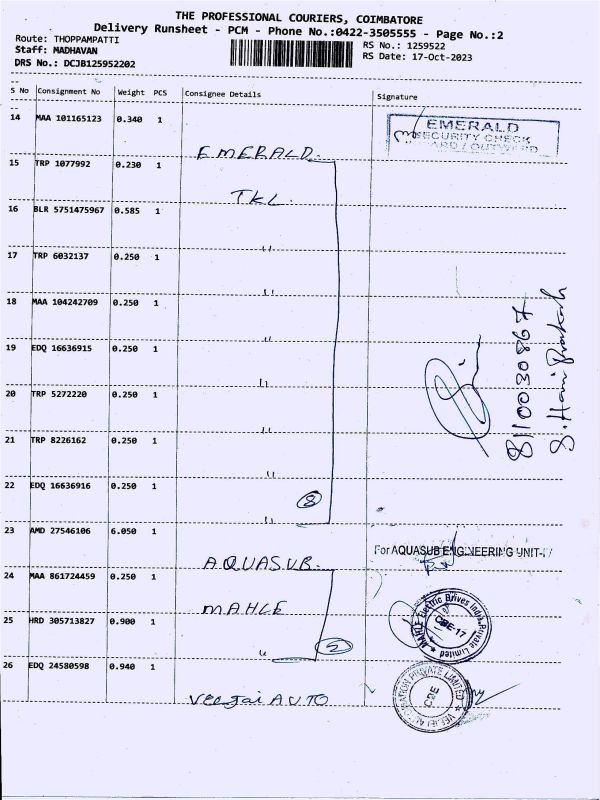 THE PROFESSIONAL COURIERS, COIMBATORE
Delivery Runsheet - PCM - Phone No.:0422-3505555 - Page No.:2
Route: THOPPAMPATTI
Staff: MADHAVAN
DRS No.: DCJB125952202
RS No.: 1259522
RS Date: 17-Oct-2023
S No Consignment No Weight PCS Consignee Details Signature
14 MAA 101165123 0.340 1
EMERALD
SECURITY CHECK
EMERALD
15 TRP 1077992 0.230 1
TKL
16 BLR 5751475967 0.585 1
"
17 TRP 6032137 0.250 1
"
18 MAA 104242709 0.250 1
"
19 EDQ 16636915 0.250 1
"
20 TRP 5272220 0.250 1
"
21 TRP 8226162 0.250 1
"
22 EDQ 16636916 0.250 1
8
"
8110030867
S. Hari Prakash
23 AMD 27546106 6.050 1
For AQUASUB ENGINEERING UNIT-
AQUASUB
24 MAA 861724459 0.250 1
MAHLE
MAHLE Electric Drives India Private Limited
CBE-17
25 HRD 305713827 0.900 1
5
"
26 EDQ 24580598 0.940 1
Veejai AUTO
PRIVATE LIMITED
CBE